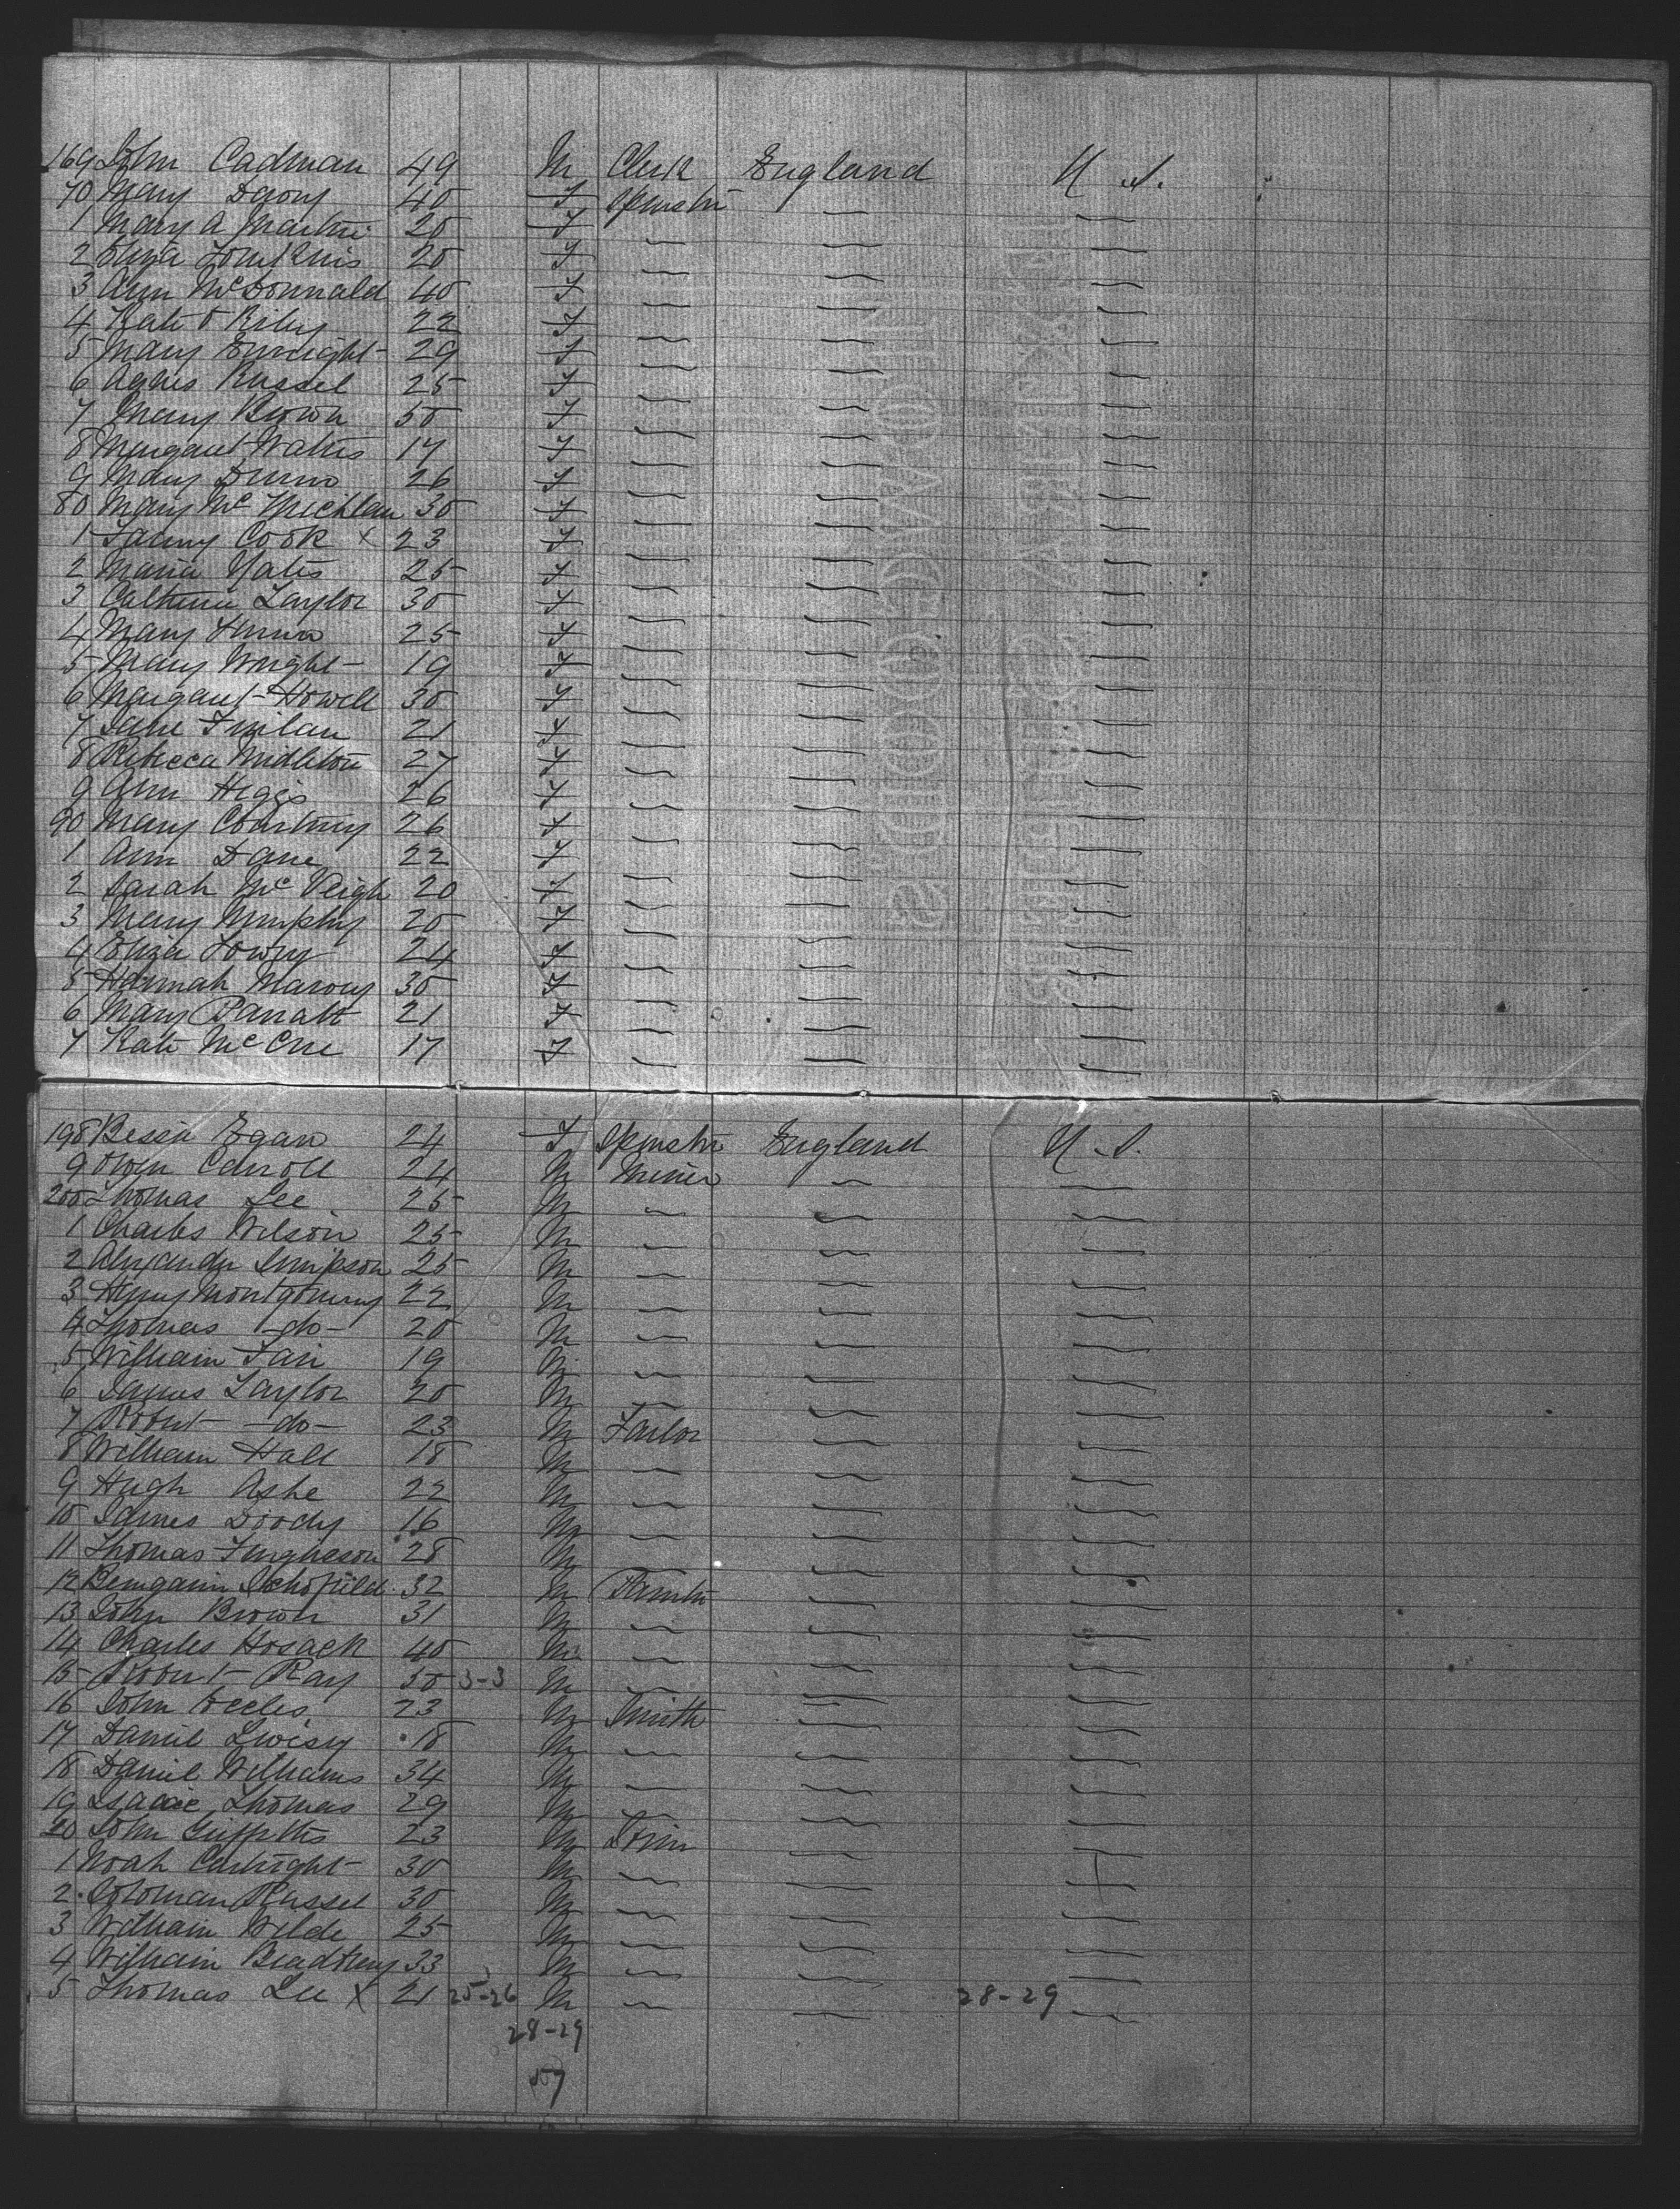 169 John Cadman 49 M Clerk England U.S.
70 Mary 40 F Spinster — —
1 Mary A Martin 20 F — — —
2 Eliza Tomkins 20 F — — —
3 Ann McDonnald 40 F — — —
4 Kate O Riley 22 F — — —
5 Mary Enright 29 F — — —
6 Agnes Russel 25 F — — —
7 Mary Brown 50 F — — —
8 Margaret Watters 17 F — — —
9 Mary Dunn 26 F — — —
80 Mary Mc 30 F — — —
1 Fanny Cook x 23 F — — —
2 Maria Yates 25 F — — —
3 Catherine Taylor 30 F — — —
4 Mary 25 F — — —
5 Mary Wright 19 F — — —
6 Margaret Howell 30 F — — —
7 Jane Finlan 21 F — — —
8 Rebecca Midleton 27 F — — —
9 Ann Higgs 26 F — — —
90 Mary Courtney 26 F — — —
1 Ann Dane 22 F — — —
2 Sarah McVeigh 20 F — — —
3 Mary Murphy 20 F — — —
4 Eliza Lowry 24 F — — —
5 Hannah 30 F — — —
6 Mary Parratt 21 F — — —
7 Kate McCue 17 F — — —
198 Bessie Egan 24 F Spinster England U.S.
9 Owen Carroll 24 M Miner — —
200 Thomas Lee 25 M — — —
1 Charles Wilson 25 M — — —
2 Alexander Simpson 25 M — — —
3 Henry Montgomery 22 M — — —
4 Thomas -do- 20 M — — —
5 William Fair 19 M — — —
6 James Taylor 20 M — — —
7 Robert -do- 23 M Tailor — —
8 William Hall 18 M — — —
9 Hugh Ashe 22 M — — —
10 James Doody 16 M — — —
11 Thomas Furgheson 28 M — — —
12 Bengamin Schofield 32 M Painter — —
13 John Brown 31 M — — —
14 Charles Hosack 40 M — — —
15 Robert Ray 30 3-3 M — — —
16 John Eccles 23 M Smith — —
17 Daniel 18 M — — —
18 Daniel Williams 34 M — — —
19 Isaac Thomas 29 M — — —
20 John Griffiths 23 M — —
1 Noah Cartright 30 M — — —
2 Soloman Russel 30 M — — —
3 William Wilde 25 M — — —
4 William 33 M — — —
5 Thomas Lee x 21 25-26 M — — 28-29 —
28-29
57